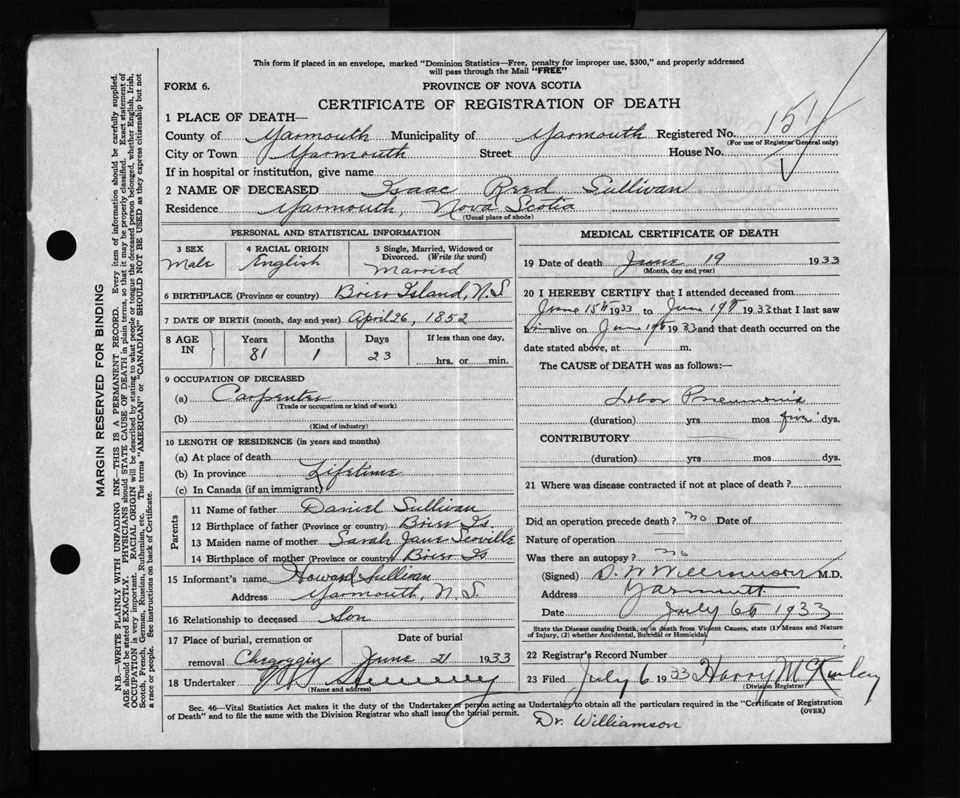 This form if placed in an envelope, marked "Dominion Statistics—Free, penalty for improper use, $300," and properly addressed
will pass through the Mail "FREE"
FORM 6.
PROVINCE OF NOVA SCOTIA
CERTIFICATE OF REGISTRATION OF DEATH
1 PLACE OF DEATH—
County of Yarmouth Municipality of Yarmouth Registered No. 151
(For use of Registrar General only)
City or Town Yarmouth Street House No.
If in hospital or institution, give name
2 NAME OF DECEASED Isaac Reed Sullivan
Residence Yarmouth, Nova Scotia
(Usual place of abode)
PERSONAL AND STATISTICAL INFORMATION
3 SEX
Male
4 RACIAL ORIGIN
English
5 Single, Married, Widowed or
Divorced. (Write the word)
Married
6 BIRTHPLACE (Province or country) Brier Island, N.S.
7 DATE OF BIRTH (month, day and year) April 26, 1852
8 AGE IN
Years Months Days If less than one day,
81 1 23 hrs. or min.
9 OCCUPATION OF DECEASED
(a) Carpenter
(Trade or occupation or kind of work)
(b)
(Kind of industry)
10 LENGTH OF RESIDENCE (in years and months)
(a) At place of death
(b) In province Lifetime
(c) In Canada (if an immigrant)
Parents
11 Name of father Daniel Sullivan
12 Birthplace of father (Province or country) Brier Is.
13 Maiden name of mother Sarah Jane Scoville
14 Birthplace of mother (Province or country) Brier Is.
15 Informant's name Howard Sullivan
Address Yarmouth, N.S.
16 Relationship to deceased Son
17 Place of burial, cremation or Date of burial
removal Chegoggin June 21 1933
18 Undertaker
(Name and address)
MEDICAL CERTIFICATE OF DEATH
19 Date of death June 19 1933
(Month, day and year)
20 I HEREBY CERTIFY that I attended deceased from
June 15th 1933 to June 19th 1933 that I last saw
him alive on June 19th 1933 and that death occurred on the
date stated above, at m.
The CAUSE of DEATH was as follows:—
Lobar Pneumonia
(duration) yrs mos five dys.
CONTRIBUTORY
(duration) yrs mos dys.
21 Where was disease contracted if not at place of death?
Did an operation precede death? no Date of
Nature of operation
Was there an autopsy? no
(Signed) D. W Williamson M.D.
Address Yarmouth
Date July 6th 1933
State the Disease causing Death, or in Death from Violent Causes, state (1) Means and Nature
of Injury, (2) whether Accidental, Suicidal or Homicidal.
22 Registrar's Record Number
23 Filed July 6 1933 Harry McKinley
(Division Registrar)
Sec. 46—Vital Statistics Act makes it the duty of the Undertaker or person acting as Undertaker to obtain all the particulars required in the "Certificate of Registration
of Death" and to file the same with the Division Registrar who shall issue the burial permit.
(OVER)
Dr. Williamson
MARGIN RESERVED FOR BINDING
N.B.—WRITE PLAINLY WITH UNFADING INK—THIS IS A PERMANENT RECORD. Every item of information should be carefully supplied.
AGE should be stated EXACTLY. PHYSICIANS should STATE CAUSE OF DEATH in plain terms, so that it may be properly classified. Exact statement of
OCCUPATION is very important. RACIAL ORIGIN will be described by stating to what people or tongue the deceased person belonged, whether English, Irish,
Scotch, French, German, Russian, Ruthenian, etc. The terms "AMERICAN" or "CANADIAN" SHOULD NOT BE USED as they express citizenship but not
a race or people. See instructions on back of Certificate.